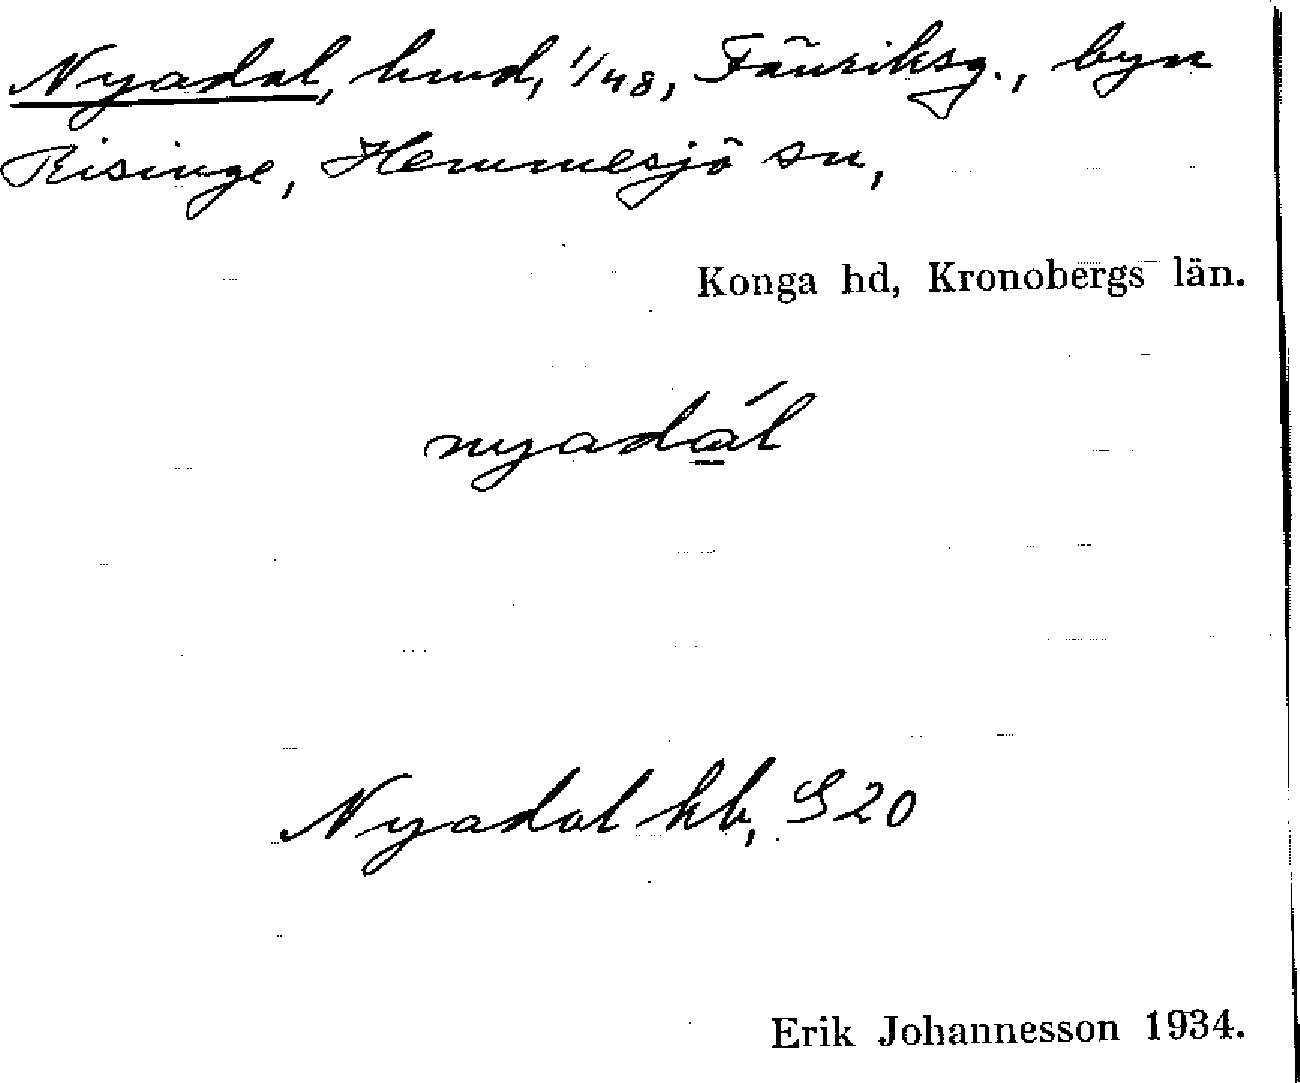 Nyadal, hmd, 1/48, Fänriksg., byn
Risinge, Hemmesjö sn,
Konga hd, Kronobergs län.
nyadál
Nyadal kb, S20
Erik Johannesson 1934.